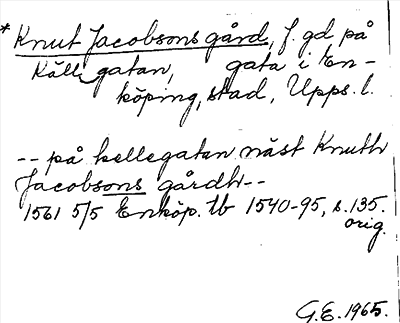 * Knut Jacobsons gård, f. gd på
Källgatan, gata i En-
köping, stad, Upps. l.
-- på kellegatan näst Knuth
Jacobsons gårdh --
1561 5/5 Enköp. tb 1540-95, s. 135.
orig.
G.E. 1965.